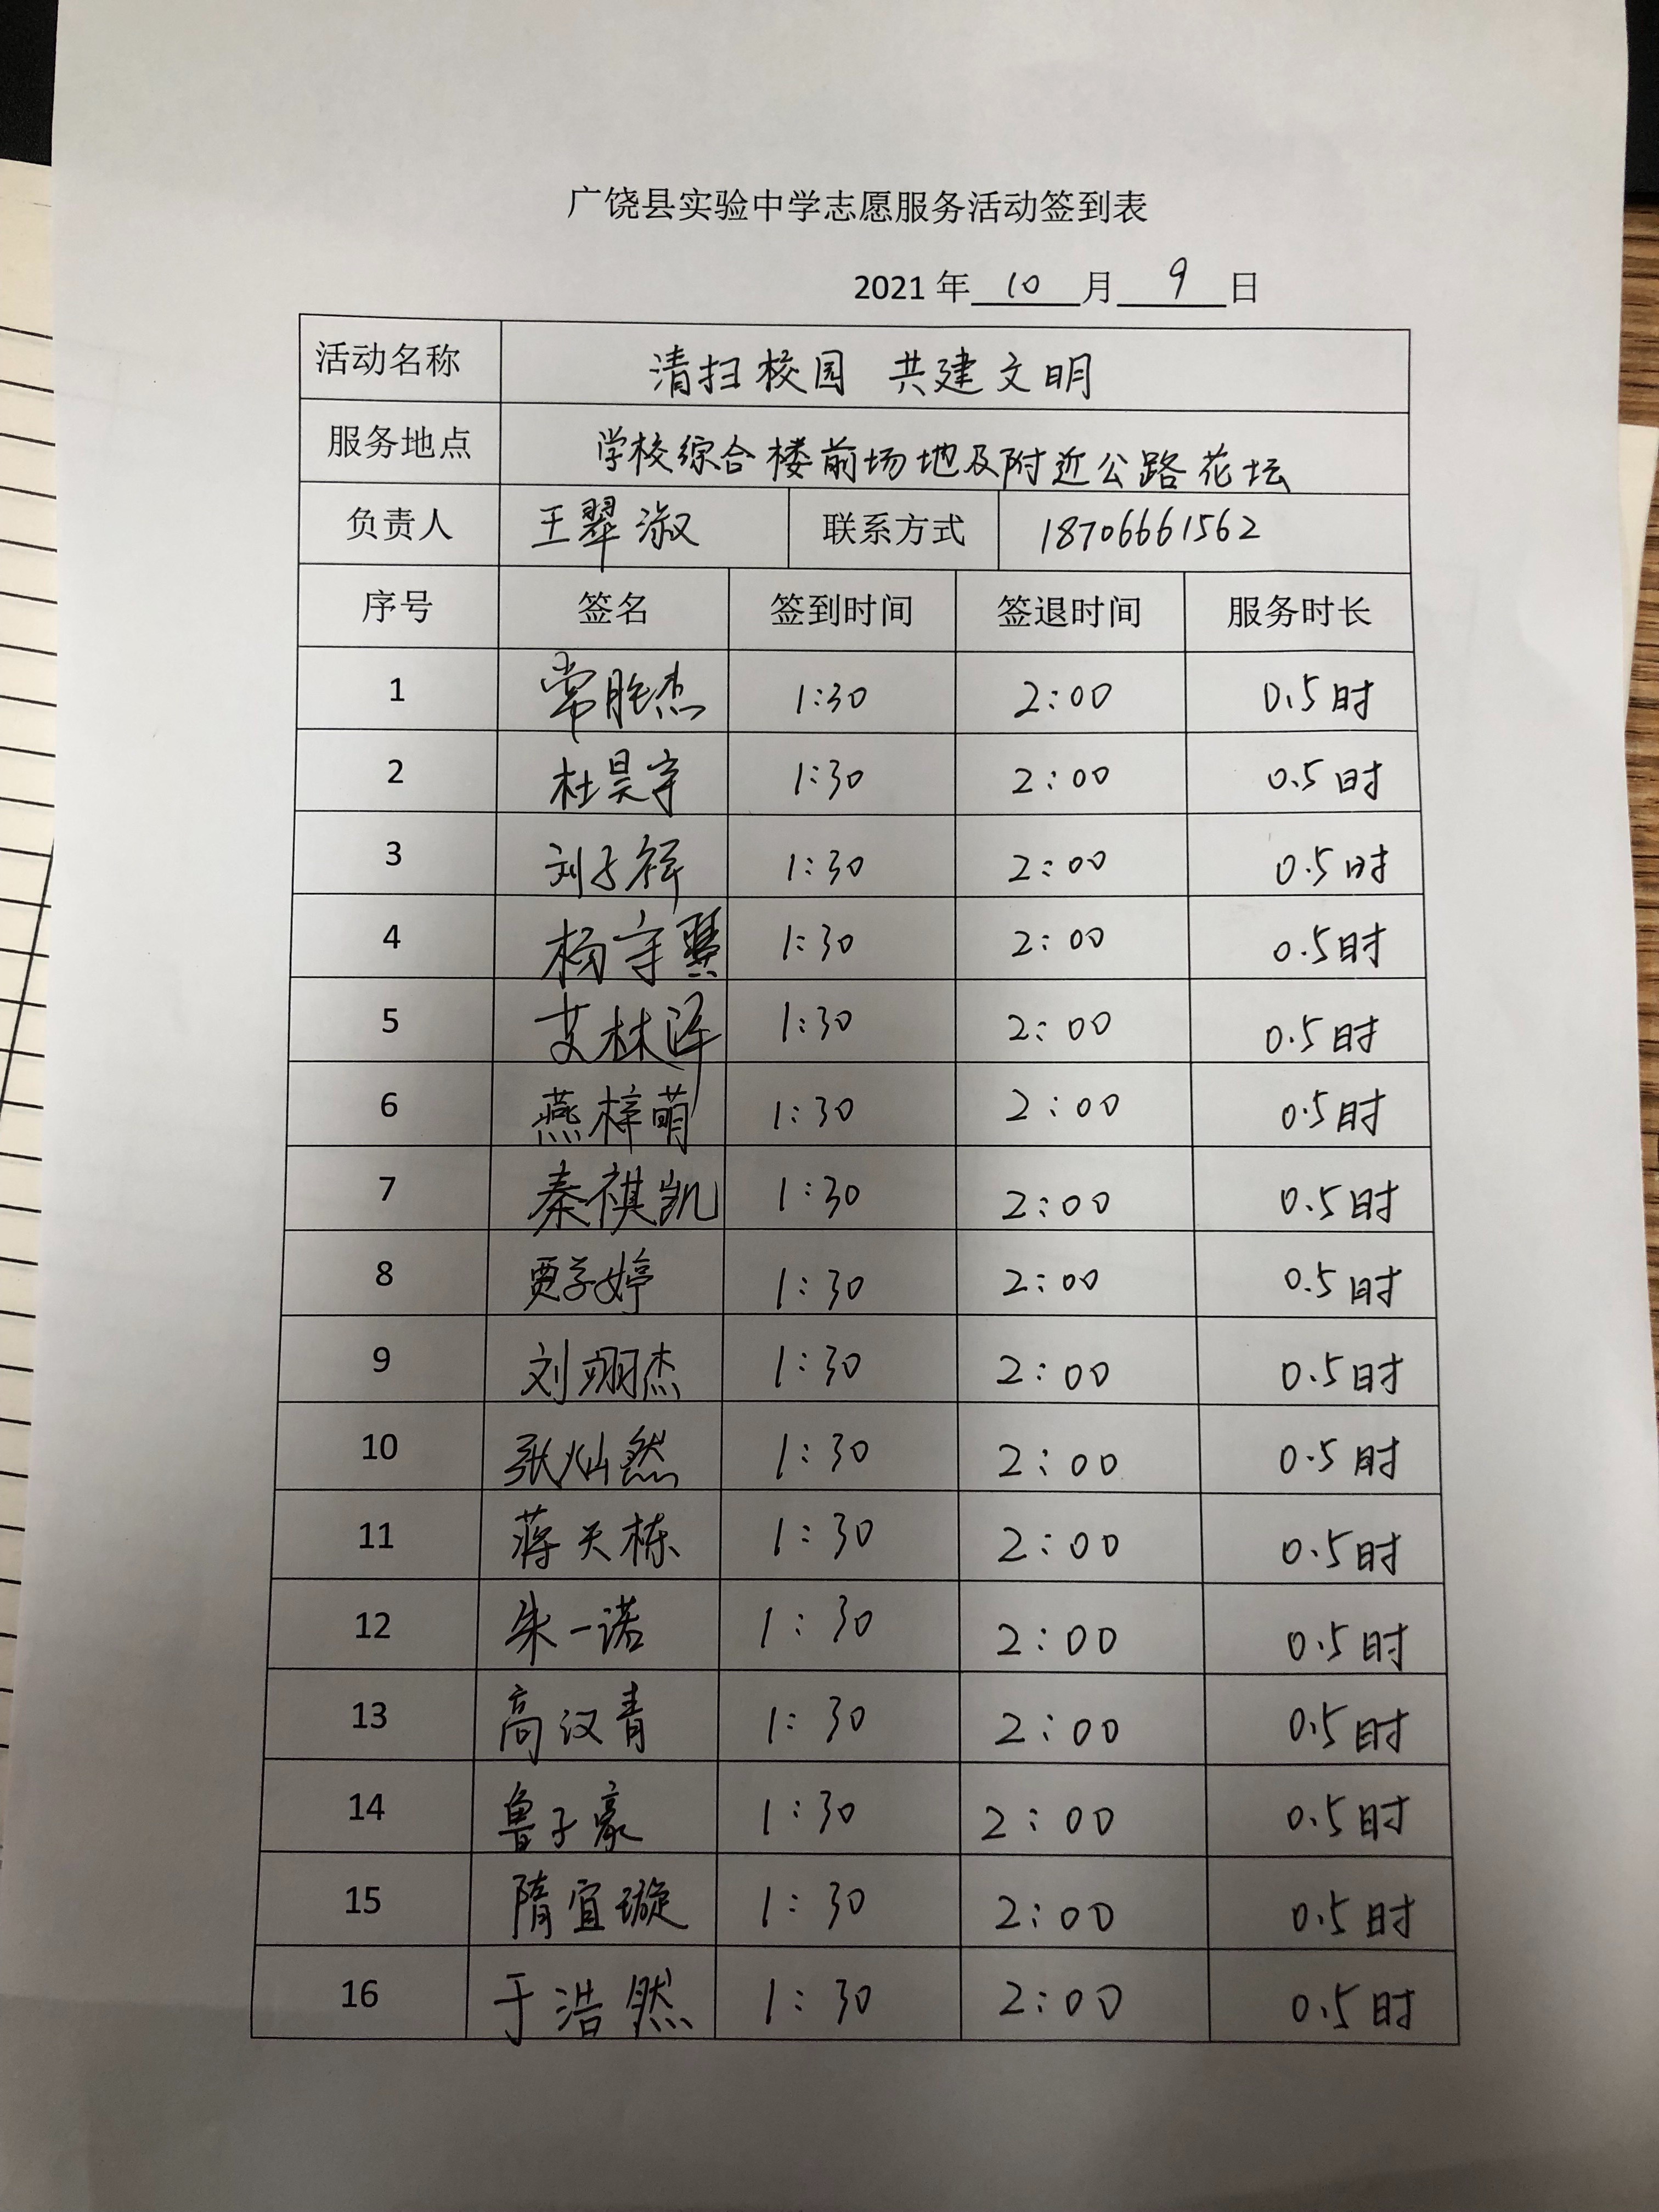 广饶县实验中学志愿服务活动签到表
2021 年 10 月 9 日
活动名称 清扫校园 共建文明
服务地点 学校综合楼前场地及附近公路花坛
负责人 王翠淑 联系方式 18706661562
序号 签名 签到时间 签退时间 服务时长
1 常胜杰 1:30 2:00 0.5时
2 杜昊宇 1:30 2:00 0.5时
3 刘子祥 1:30 2:00 0.5时
4 杨守 1:30 2:00 0.5时
5 艾林泽 1:30 2:00 0.5时
6 燕梓萌 1:30 2:00 0.5时
7 秦祺凯 1:30 2:00 0.5时
8 贾学婷 1:30 2:00 0.5时
9 刘翊杰 1:30 2:00 0.5时
10 张灿然 1:30 2:00 0.5时
11 蒋天栋 1:30 2:00 0.5时
12 朱一诺 1:30 2:00 0.5时
13 高汉青 1:30 2:00 0.5时
14 鲁子豪 1:30 2:00 0.5时
15 隋宜璇 1:30 2:00 0.5时
16 于浩然 1:30 2:00 0.5时